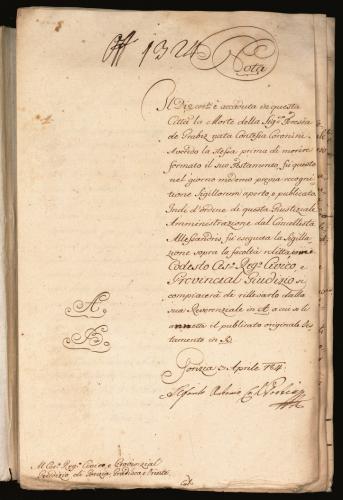 1324
Nota
Il Dì corrte è accaduta in questa
Città la Morte della Sigra Teresia
de Grabiz nata Contessa Coronini
Avendo la stessa prima di morire
formato il suo Testamento, fu questo
nel giorno medemo previa recogni
tione Sigillorum aperto, e publicato.
Indi d'ordine di questa Giustiziale
Amministrazione dal Cancellista
Allessandris, fu eseguita la Sigilla
zione sopra la facoltà relitta,
Codesto Ces. Rego Civico, e
Provincial Giudizio si
compiacerà di rillevarlo dalla
sua Reverenziale in A, a cui si
annetta il publicato originale Te-
stamento in B.
A
B
Gorizia Aprile
Antonio
Al Ces. Rego Civico e Provinzial
Giudizio di Gorizia, Gradisca e Trieste